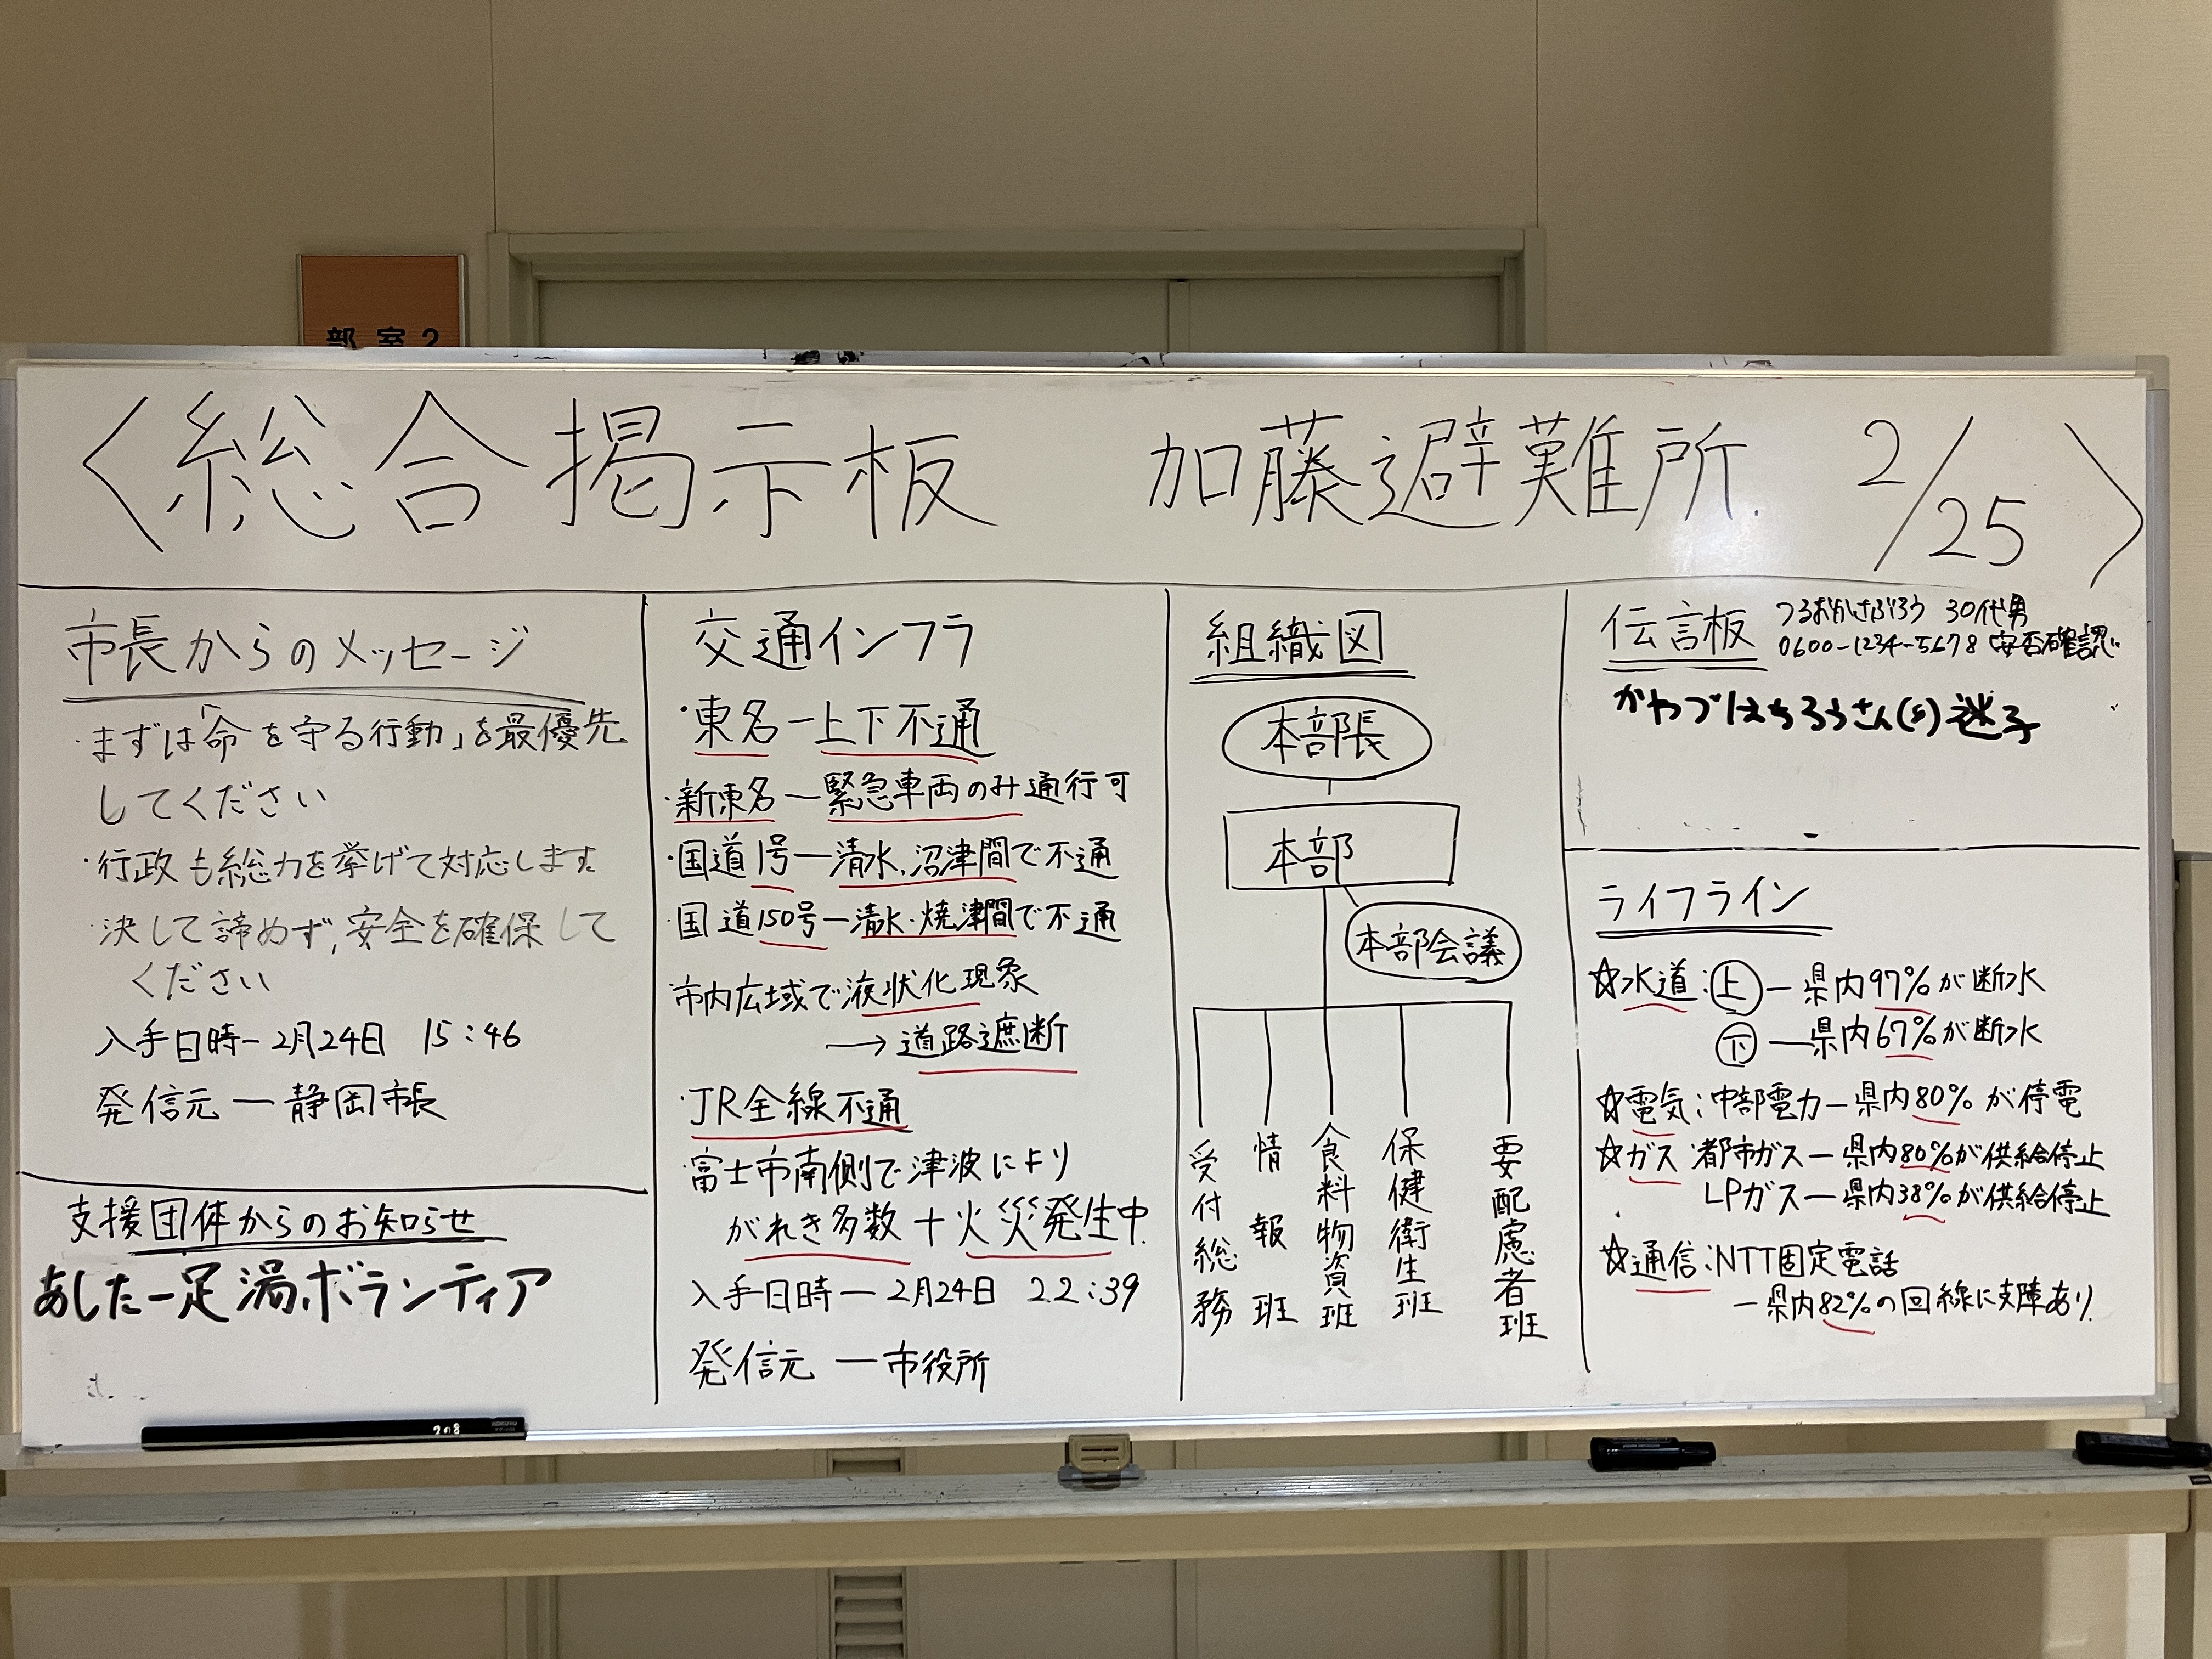 部室2
〈総合掲示板 加藤避難所 2/25〉
市長からのメッセージ
・まずは「命を守る行動」を最優先
してください
・行政も総力を挙げて対応します
・決して諦めず,安全を確保して
ください
入手日時-2月24日 15:46
発信元-静岡市長
支援団体からのお知らせ
あした-足湯ボランティア
交通インフラ
・東名-上下不通
・新東名-緊急車両のみ通行可
・国道1号-清水,沼津間で不通
・国道150号-清水・焼津間で不通
市内広域で液状化現象
→道路遮断
・JR全線不通
・富士市南側で津波により
がれき多数+火災発生中
入手日時-2月24日 22:39
発信元-市役所
組織図
本部長
本部
本部会議
受付総務
情報班
食料物資班
保健衛生班
要配慮者班
伝言板
つるおかさぶろう 30代男
0600-1234-5678 安否確認
かわづはちろうさん(8)迷子
ライフライン
☆水道:上-県内97%が断水
下-県内67%が断水
☆電気:中部電力-県内80%が停電
☆ガス:都市ガス-県内80%が供給停止
LPガス-県内38%が供給停止
☆通信:NTT固定電話
-県内82%の回線に支障あり